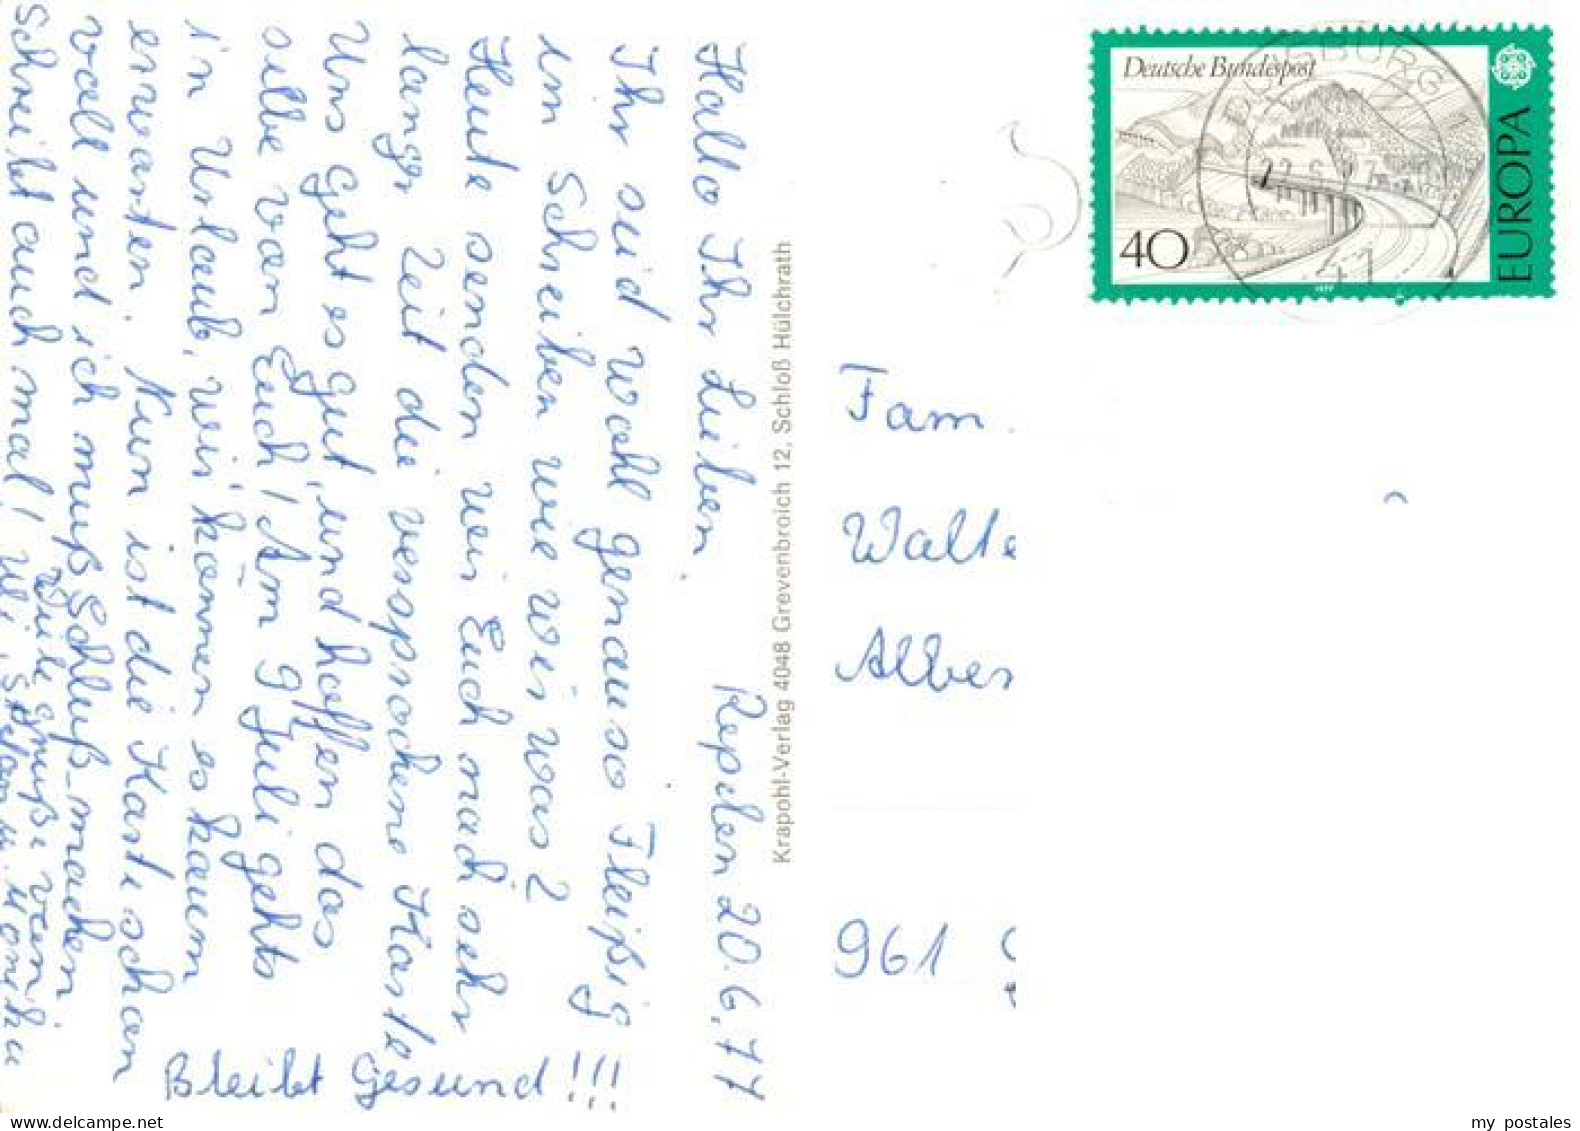 Repelen 20.6.77
Hallo Ihr Lieben.
Ihr seid wohl genauso Fleißig
im Schreiben wie wir was?
Heute senden wir Euch nach sehr
langer Zeit die versprochene Karte
Uns geht es gut, und hoffen das
selbe von Euch! Am 9 Juli gehts
in Urlaub, wir können es kaum
erwarten. Nun ist die Karte schon
voll und ich muß Schluß machen
Schreibt auch mal! Viele grüße von
Uli, Stefan u. Monika
Bleibt Gesund!!!
Krapohl-Verlag 4048 Grevenbroich 12, Schloß Hülchrath
Deutsche Bundespost
EUROPA
40
1977
DUISBURG
41
Fam.
Walte
Alber
961
my postales